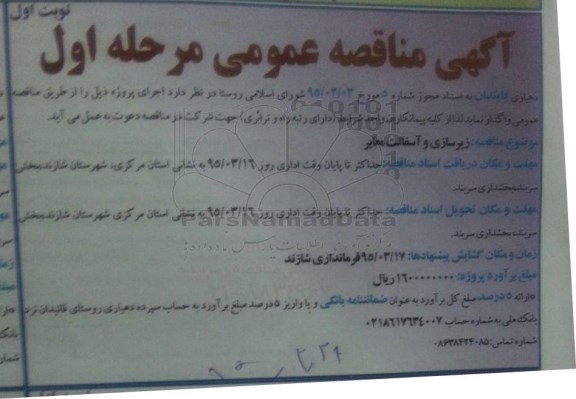 نوبت اول
آگهی مناقصه عمومی مرحله اول
دهیاری قائیدان به استناد مجوز شماره ۵ مورخ ۹۵/۰۳/۰۳ شورای اسلامی روستا در نظر دارد اجرای پروژه ذیل را از طریق مناقصه
عمومی واگذار نماید لذا از کلیه پیمانکاران واجد شرایط (دارای رتبه راه و ترابری) جهت شرکت در مناقصه دعوت به عمل می آید.
موضوع مناقصه: زیرسازی و آسفالت معابر
مهلت و مکان دریافت اسناد مناقصه: حداکثر تا پایان وقت اداری روز ۹۵/۰۳/۱۶ به نشانی استان مرکزی، شهرستان شازند، بخش
سربند، بخشداری سربند.
مهلت و مکان تحویل اسناد مناقصه: حداکثر تا پایان وقت اداری روز ۹۵/۰۳/۱۶ به نشانی استان مرکزی شهرستان شازند، بخش
سربند، بخشداری سربند.
ParsNamadData
زمان و مکان گشایش پیشنهادها: ۹۵/۰۳/۱۷ فرمانداری شازند
مبلغ برآورد پروژه: ۱۶۰۰۰۰۰۰۰۰ ریال
ارائه ۵ درصد مبلغ کل برآورد به عنوان ضمانتنامه بانکی و یا واریز ۵ درصد مبلغ برآورد به حساب سپرده دهیاری روستای قائیدان نزد
بانک ملی به شماره حساب ۰۲۱۸۶۱۷۶۳۴۰۰۷
شماره تماس: ۰۸۶۳۸۴۲۴۰۸۵